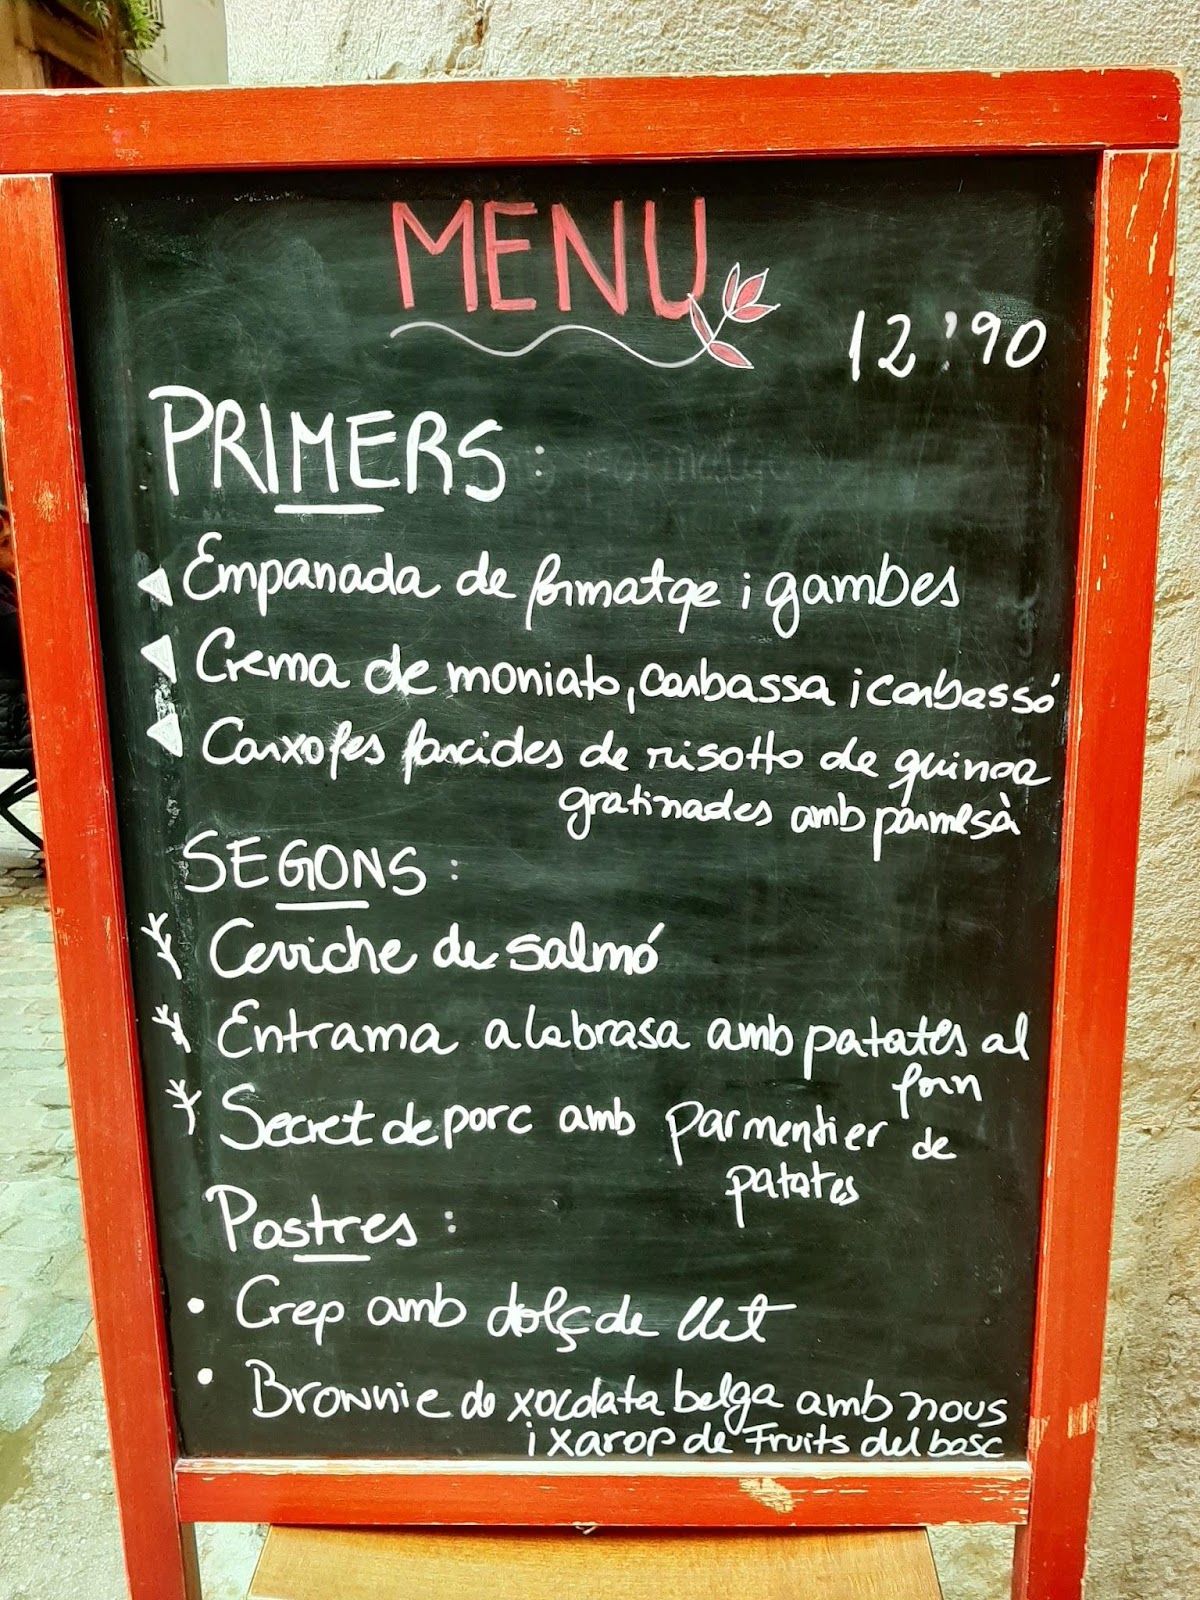 MENU
12'90
PRIMERS:
Empanada de formatge i gambes
Crema de moniato, carbassa i carbassó
Carxofes farcides de risotto de quinoa
gratinades amb parmesà
SEGONS:
Ceviche de salmó
Entrama a la brasa amb patates al
forn
Secret de porc amb parmentier de
patates
Postres:
Crep amb dolç de llet
Brownie de xocolata belga amb nous
i xarop de Fruits del bosc